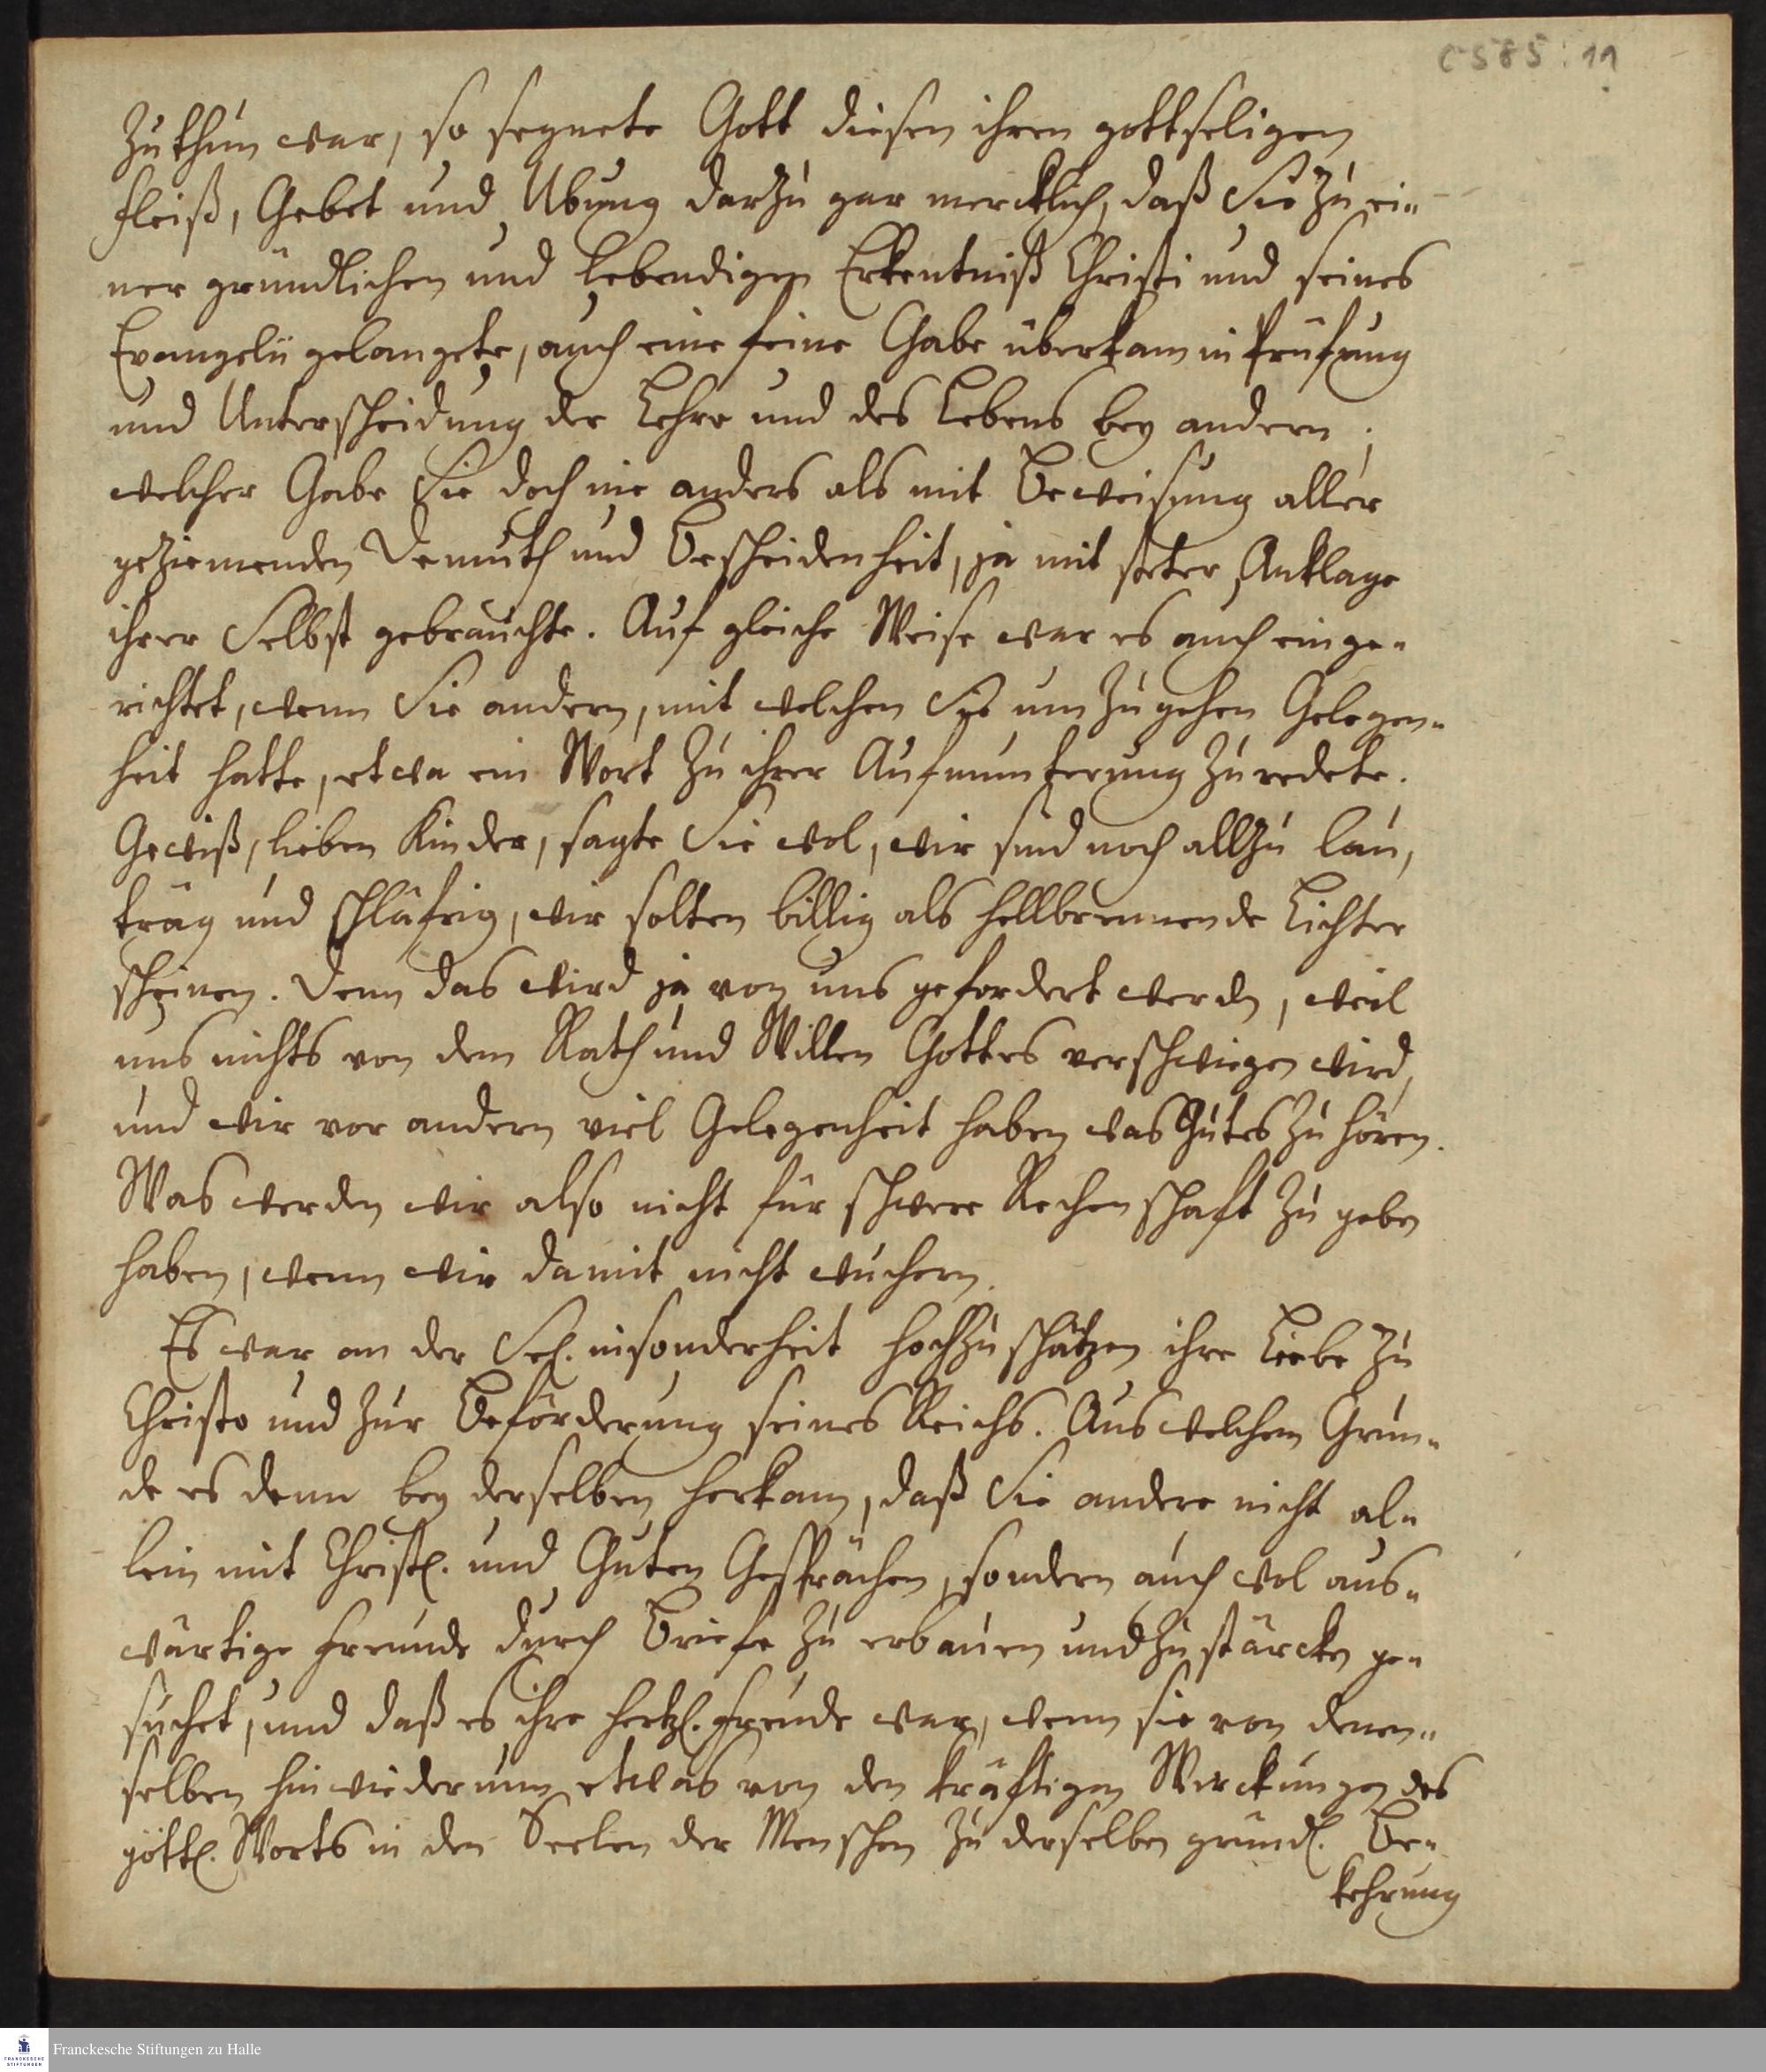 C 585 : 11
zuthun war, so segnete Gott diesen ihren gottseligen
Fleiß, Gebet und Ubung darzu gar mercklich, daß Sie zu ei-
ner gründlichen und lebendigen Erkentniß Christi und seines
Evangelii gelangete, auch eine feine Gabe überkam in Prüfung
und Unterscheidung der Lehre und des Lebens bey andern;
welcher Gabe Sie doch nie anders als mit Beweisung aller
geziemenden Demuth und Bescheidenheit, ja mit steter Anklage
ihrer Selbst gebrauchte. Auf gleiche Weise war es auch einge-
richtet, wenn Sie andern, mit welchen Sie umzugehen Gelegen-
heit hatte, etwa ein Wort zu ihrer Aufmunterung zuredete.
Gewiß, lieben Kinder, sagte Sie wol, wir sind noch allzu lau,
träg und schläfrig, wir solten billig als hellbrennende Lichter
scheinen. Denn das wird ja von uns gefordert werden, weil
uns nichts von dem Rath und Willen Gottes verschwiegen wird,
und wir vor andern viel Gelegenheit haben was Gutes zu hören.
Was werden wir also nicht für schwere Rechenschaft zu geben
haben, wenn wir damit nicht wuchern.
Es war an der Sel. insonderheit hochzuschätzen ihre Liebe zu
Christo und zur Beförderung seines Reichs. Aus welchem Grun-
de es denn bey derselben herkam, daß Sie andere nicht al-
lein mit Christl. und Guten Gesprächen, sondern auch wol aus-
wärtige Freunde durch Briefe zu erbauen und zu stärcken ge-
suchet, und daß es ihre hertzl. Freude war, wenn sie von denen-
selben hinwiederum etwas von den kräftigen Wirckungen des
göttl. Worts in den Seelen der Menschen zu derselben gründl. Be-
kehrung
Franckesche Stiftungen zu Halle
FRANCKESCHE
STIFTUNGEN